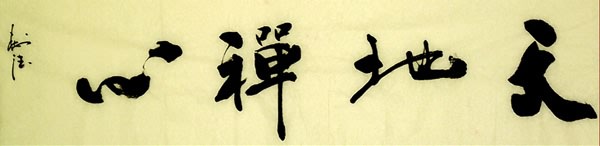 天地禪心